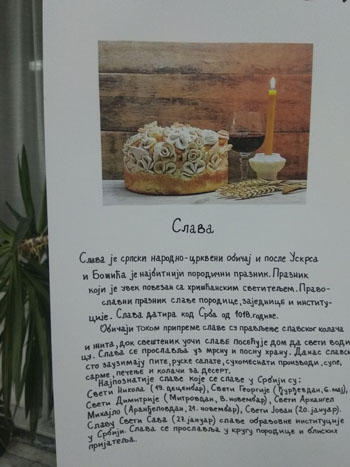 Слава
Слава је српски народно-црквени обичај и после Ускрса
и Божића је најбитнији породични празник. Празник
који је увек повезан са хришћанским светитељем. Право-
славни празник славе породице, заједнице и институ-
ције. Слава датира код Срба од 1018. године.
Обичаји током припреме славе су прављење славског колача
и жита, док свештеник уочи славе посећује дом да свети води-
цу. Слава се прославља уз мрсну и посну храну. Данас славск
сто заузимају пите, руске салате, сухомеснати производи, супе,
сарме, печење и колачи за десерт.
Најпознатије славе које се славе у Србији су:
Свети Никола (19. децембар), Свети Георгије (Ђурђевдан, 6. мај),
Свети Димитрије (Митровдан, 8. новембар), Свети Архангел
Михајло (Аранђеловдан, 21. новембар), Свети Јован (20. јануар).
Славу Свети Сава (27. јануар) славе образовне институције
у Србији. Слава се прославља у кругу породице и блиских
пријатеља.